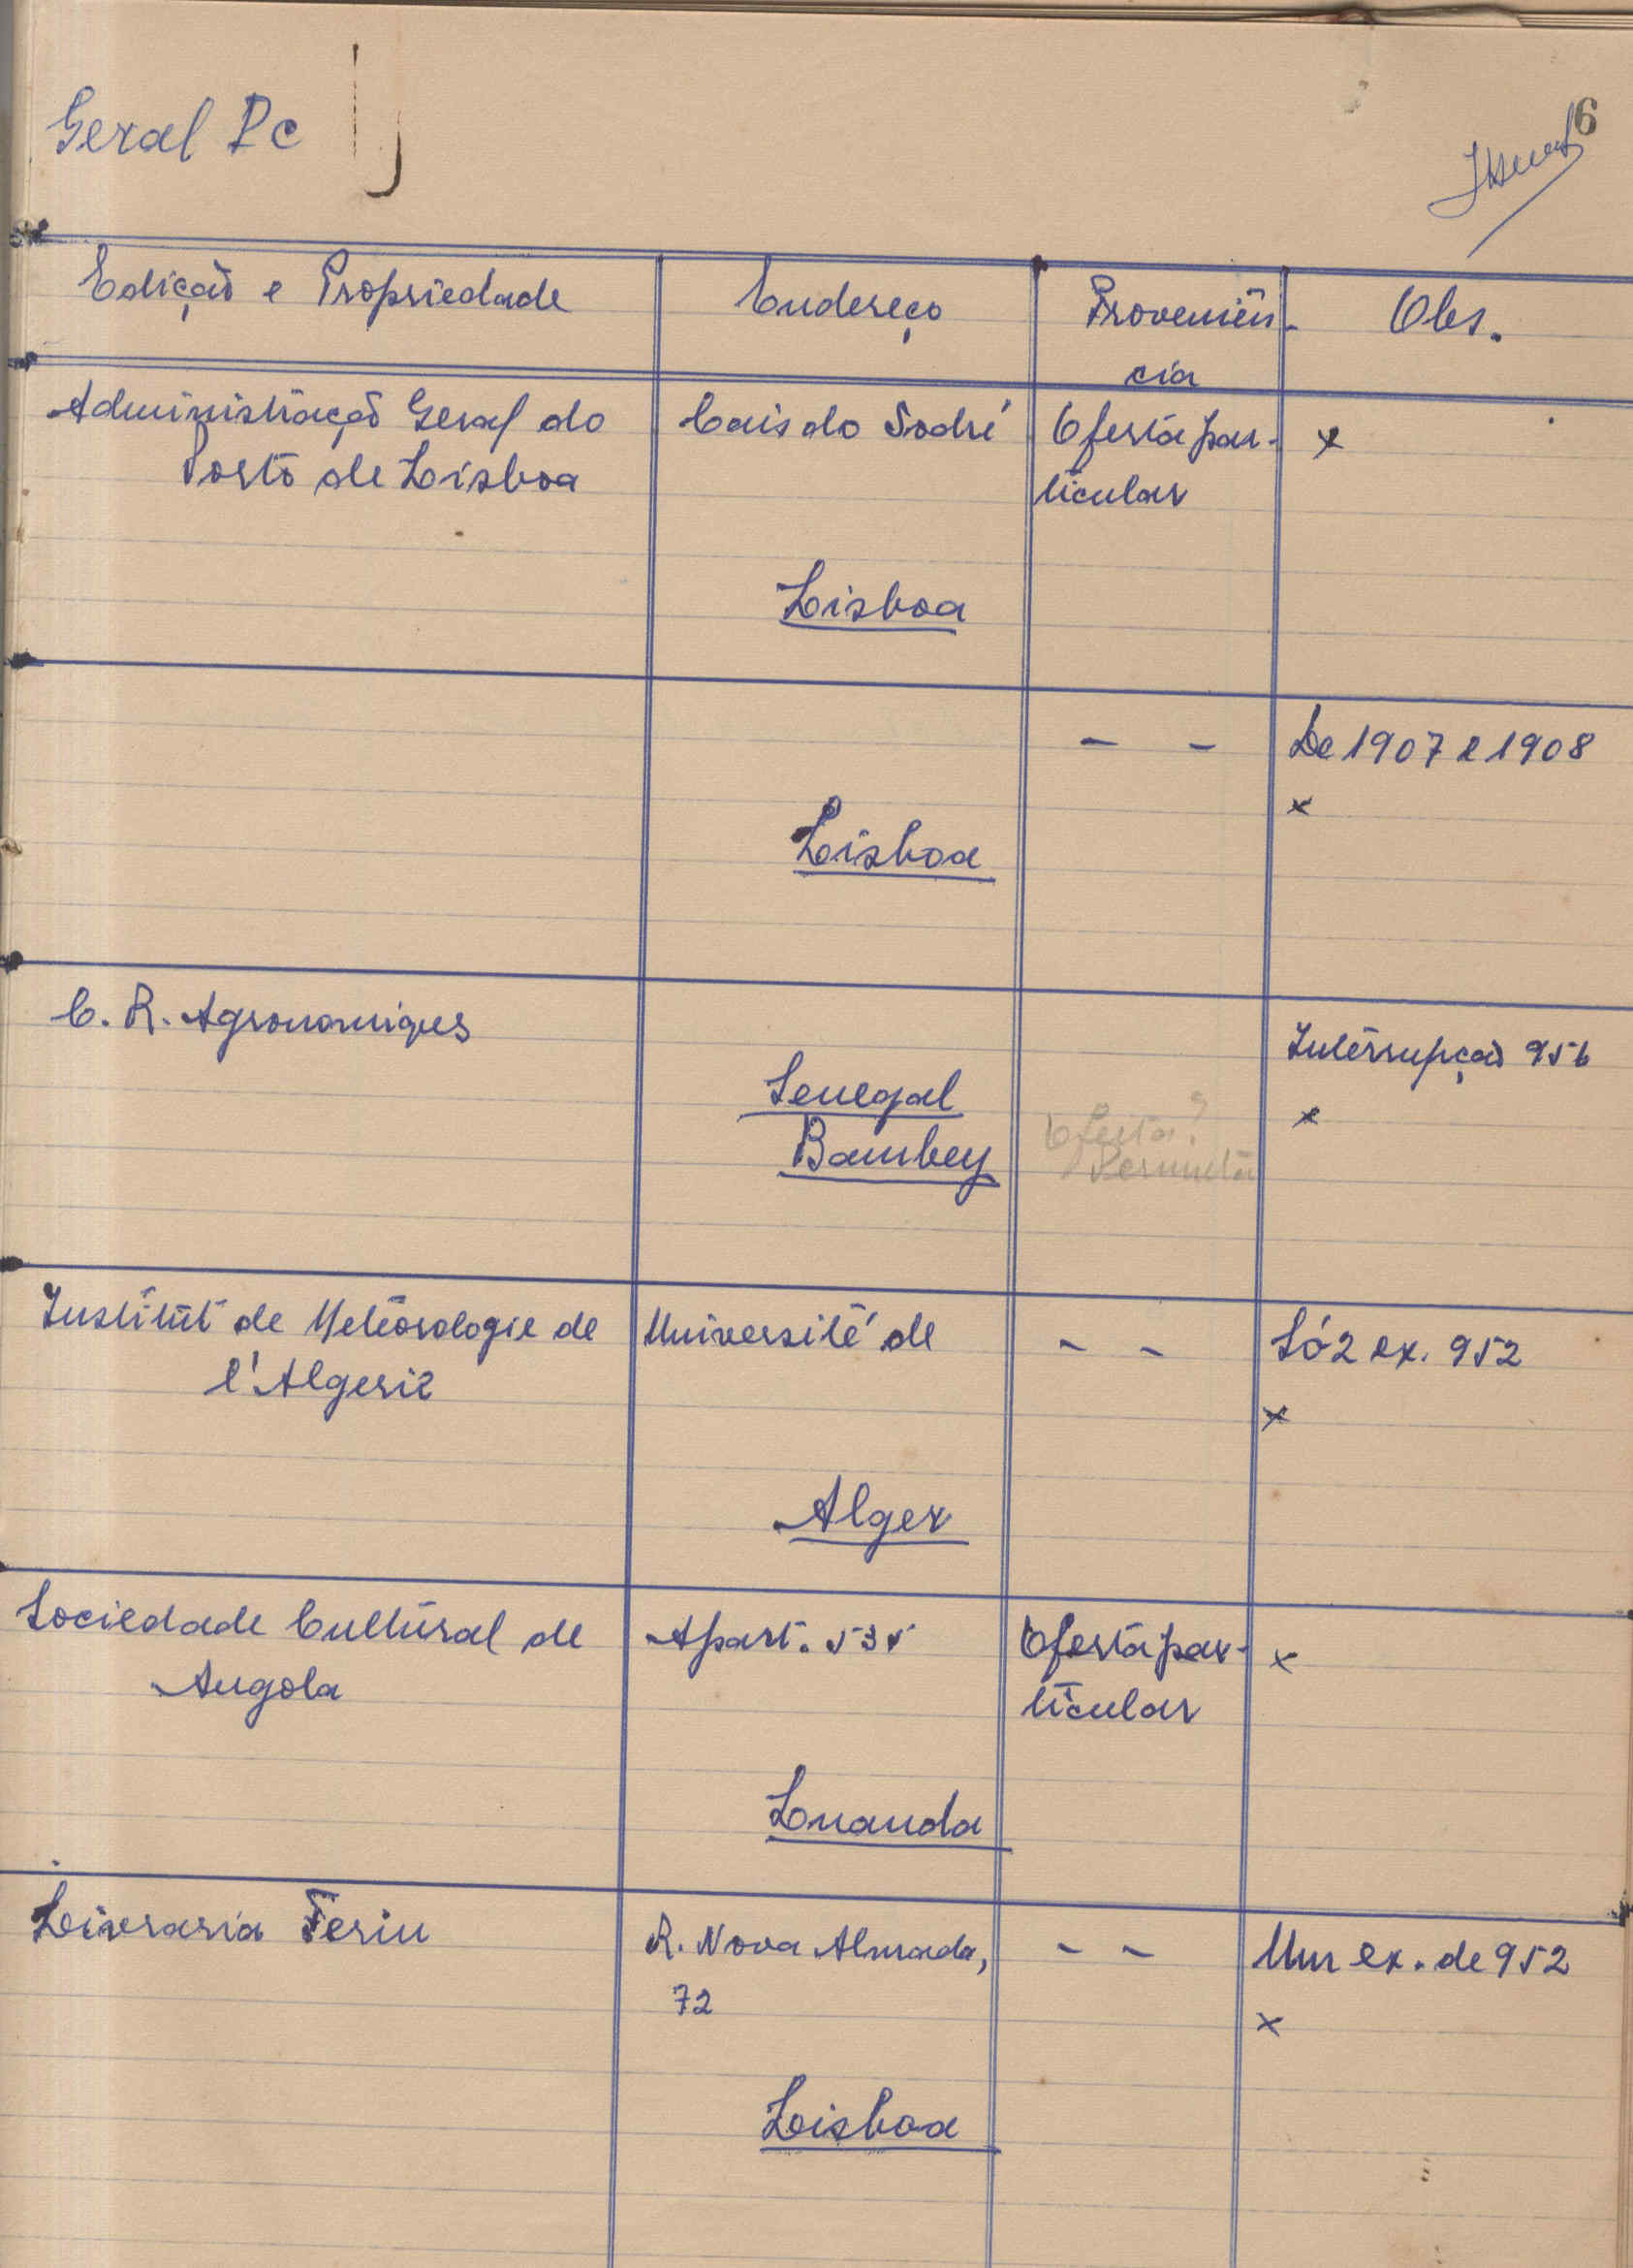 Geral Pc
6
Edição e Propriedade
Endereço
Proveniên-
cia
Obs.
Administração Geral do
Porto de Lisboa
Cais do Sodré
Lisboa
Oferta par-
ticular
x
Lisboa
- -
De 1907 e 1908
x
C. R. Agronomiques
Senegal
Bambey
Oferta?
Permuta
Interrupção 956
x
Institut de Meteorologie de
l'Algerie
Université de
Alger
- -
Só 2 ex. 952
x
Sociedade Cultural de
Angola
Apart. 535
Luanda
Oferta par-
ticular
x
Livraria Ferin
R. Nova Almada,
72
Lisboa
- -
Um ex. de 952
x